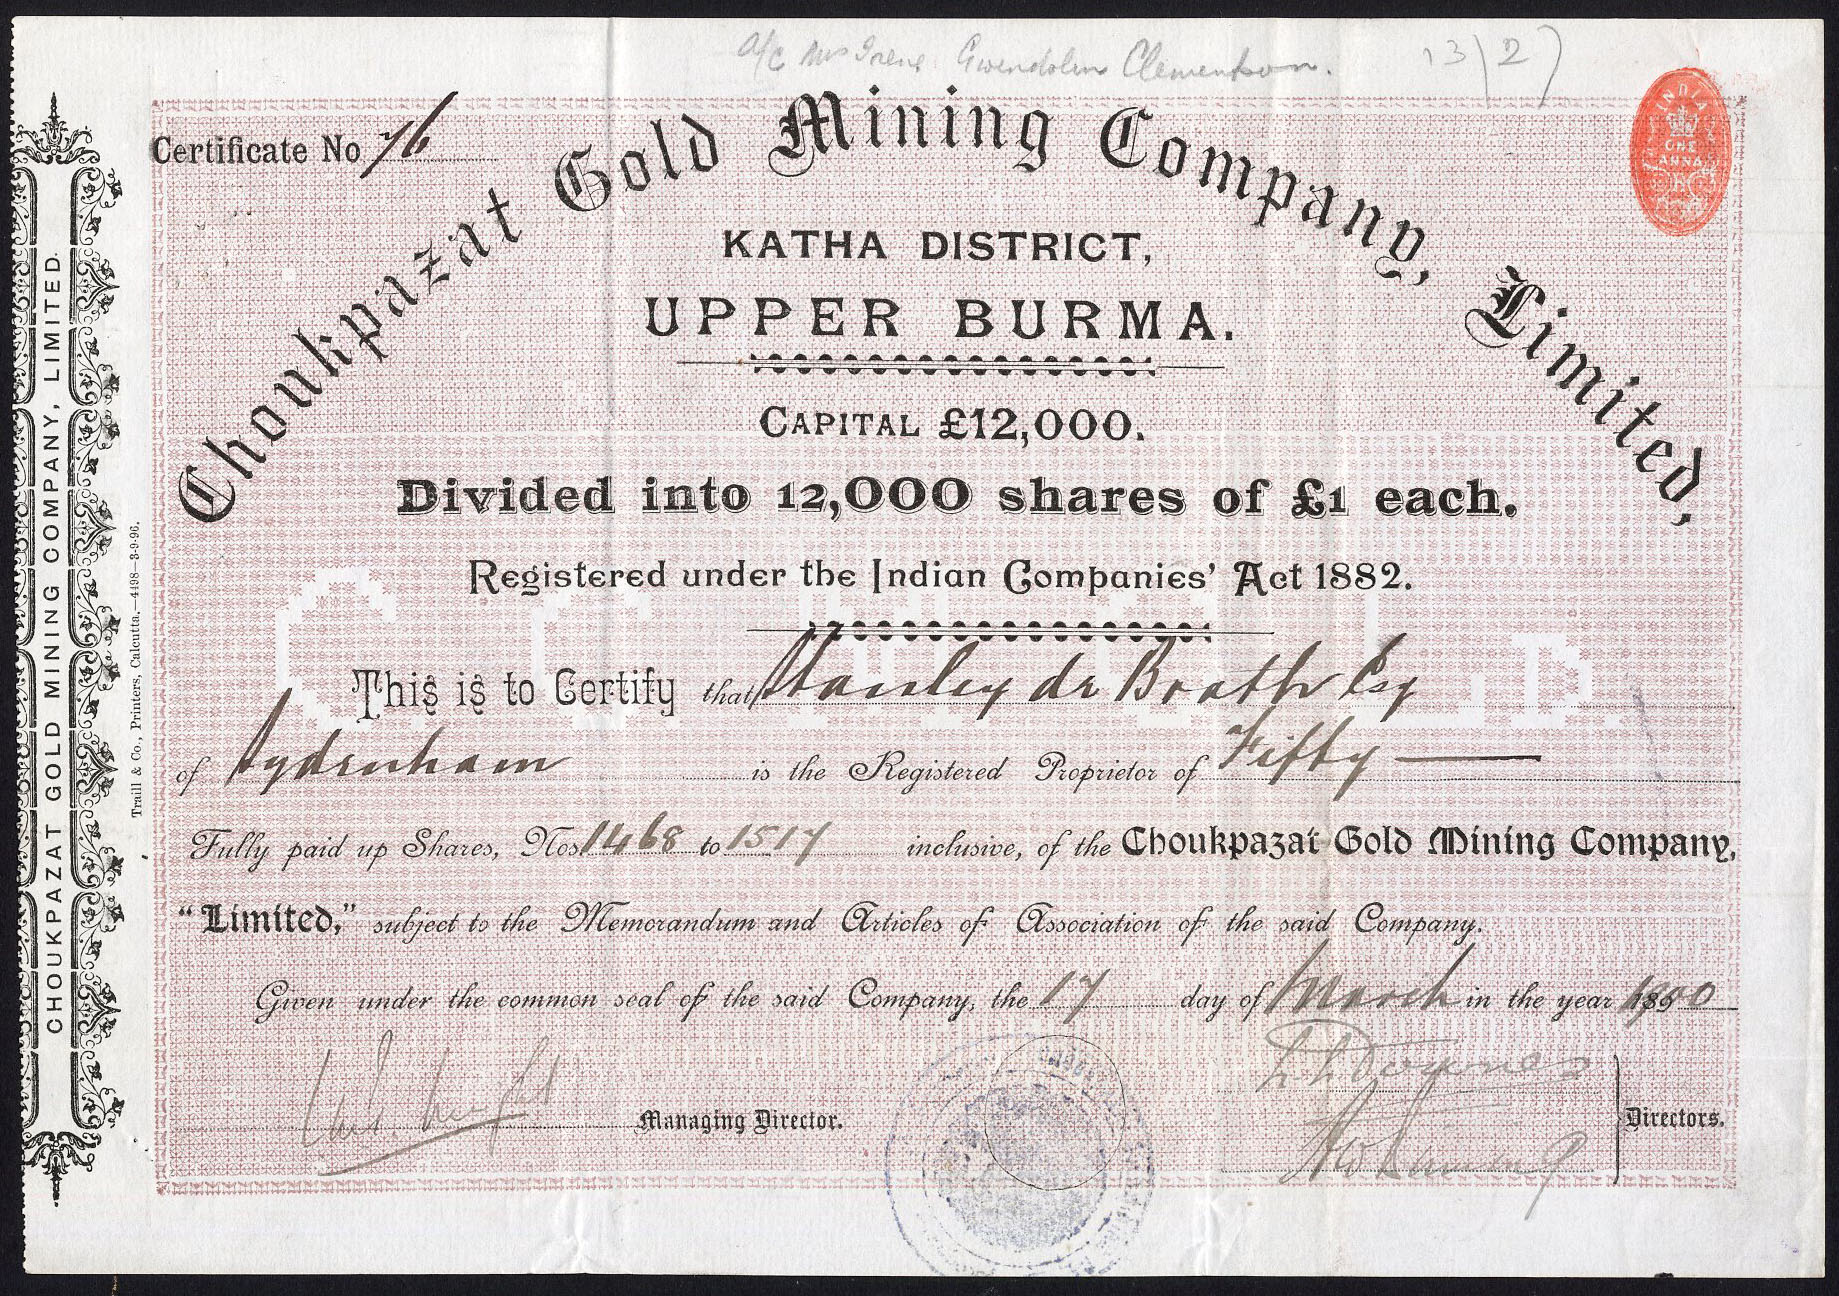 a/c Mrs Irene Gwendolen Clementson. 13/2
INDIA
ONE
ANNA
Certificate No 76
Choukpazat Gold Mining Company, Limited,
KATHA DISTRICT,
UPPER BURMA.
CAPITAL £12,000.
Divided into 12,000 shares of £1 each.
Registered under the Indian Companies' Act 1882.
This is to Certify that Stanley de Brath Esq
of Sydenham is the Registered Proprietor of Fifty
Fully paid up Shares, Nos 1468 to 1517 inclusive, of the Choukpazat Gold Mining Company,
"Limited," subject to the Memorandum and Articles of Association of the said Company.
Given under the common seal of the said Company, the 17 day of March in the year 1900
Managing Director.
Directors.
CHOUKPAZAT GOLD MINING COMPANY, LIMITED.
Traill & Co., Printers, Calcutta.—498—3-9-96.